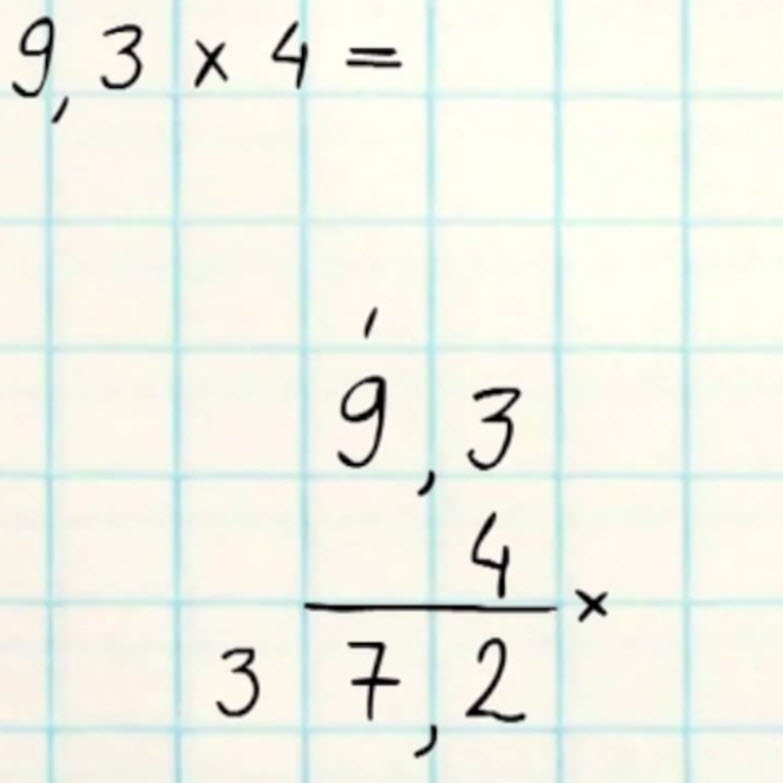 9,3 × 4 =
1
9,3
4
×
37,2